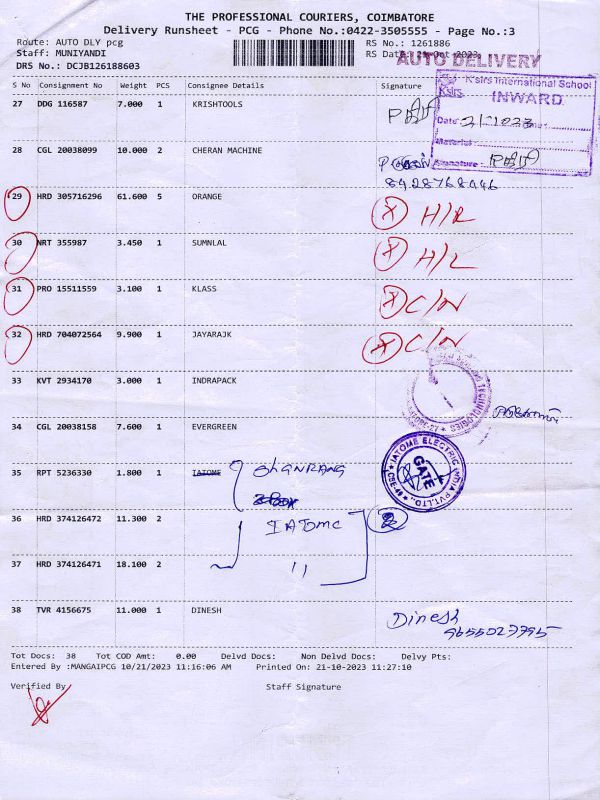 THE PROFESSIONAL COURIERS, COIMBATORE
Delivery Runsheet - PCG - Phone No.:0422-3505555 - Page No.:3
Route: AUTO DLY pcg
RS No.: 1261886
Staff: MUNIYANDI
RS Date: 21-Oct-2023
AUTO DELIVERY
DRS No.: DCJB126188603
S No Consignment No Weight PCS Consignee Details Signature
K'sirs International School
Ksirs
INWARD
Date
Material
Signature
27 DDG 116587 7.000 1 KRISHTOOLS
28 CGL 20038099 10.000 2 CHERAN MACHINE
29 HRD 305716296 61.600 5 ORANGE
X H/R
30 NRT 355987 3.450 1 SUMNLAL
X H/L
31 PRO 15511559 3.100 1 KLASS
X C/N
32 HRD 704072564 9.900 1 JAYARAJK
X C/N
33 KVT 2934170 3.000 1 INDRAPACK
34 CGL 20038158 7.600 1 EVERGREEN
35 RPT 5236330 1.800 1 IATOME
IATOME ELECTRIC INDIA PVT.LTD.,
GATE
36 HRD 374126472 11.300 2
IATOME
37 HRD 374126471 18.100 2
"
38 TVR 4156675 11.000 1 DINESH
Dinesh
Tot Docs: 38 Tot COD Amt: 0.00 Delvd Docs: Non Delvd Docs: Delvy Pts:
Entered By :MANGAIPCG 10/21/2023 11:16:06 AM Printed On: 21-10-2023 11:27:10
Verified By Staff Signature